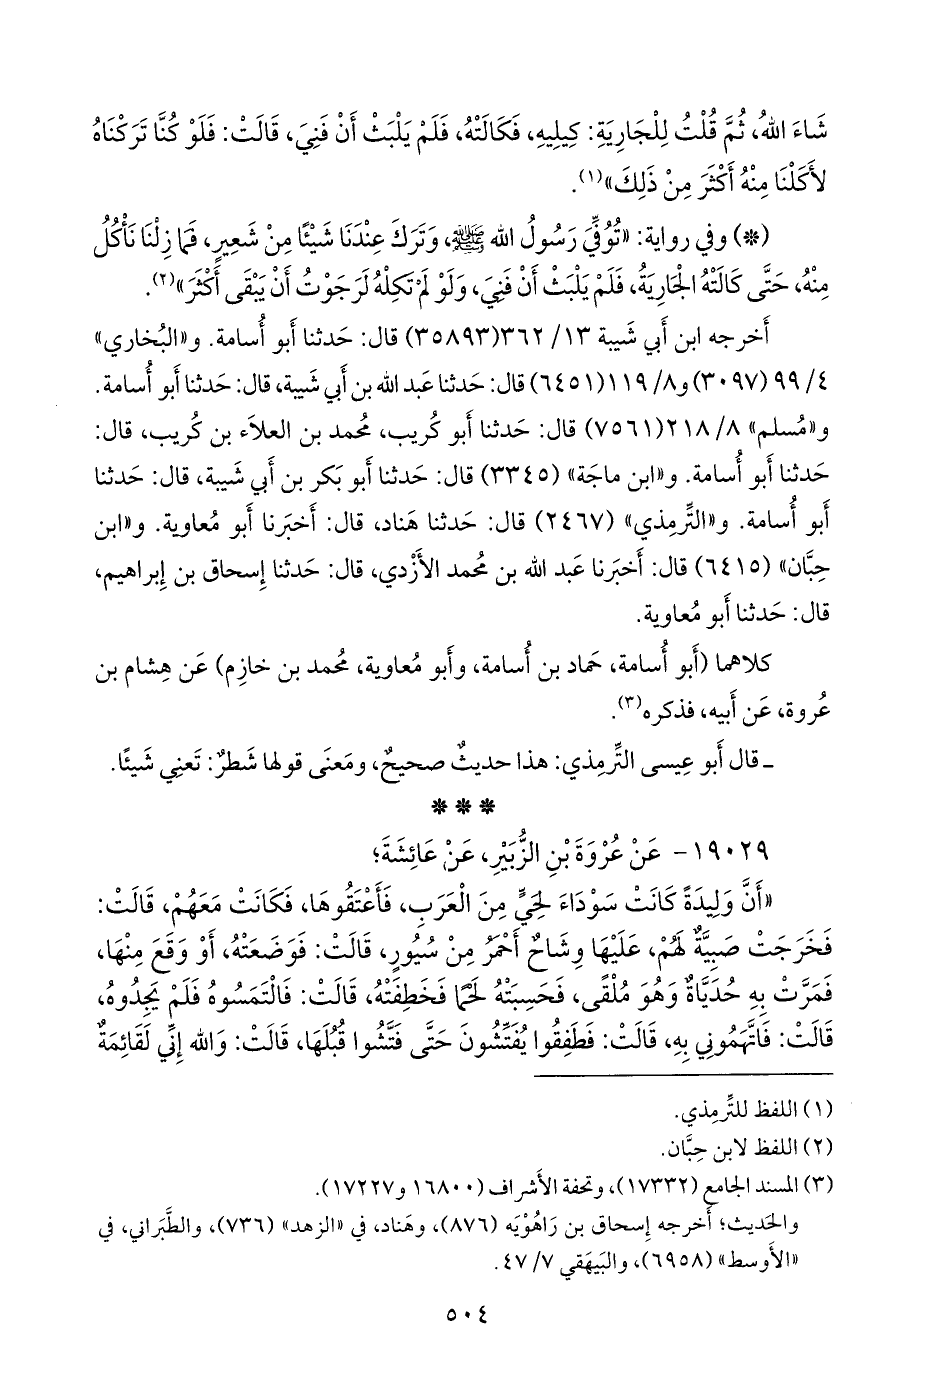 شَاءَ اللهُ، ثُمَّ قُلْتُ لِلْجَارِيَةِ: كِيلِيهِ، فَكَالَتْهُ، فَلَمْ يَلْبَثْ أَنْ فَنِيَ، قَالَتْ: فَلَوْ كُنَّا تَرَكْنَاهُ
لأَكَلْنَا مِنْهُ أَكْثَرَ مِنْ ذَلِكَ»(١).
(*) وفي رواية: «تُوُفِّيَ رَسُولُ الله ﷺ، وَتَرَكَ عِنْدَنَا شَيْئًا مِنْ شَعِيرٍ، فَمَا زِلْنَا نَأْكُلُ
مِنْهُ، حَتَّى كَالَتْهُ الْجَارِيَةُ، فَلَمْ يَلْبَثْ أَنْ فَنِيَ، وَلَوْ لَمْ تَكِلْهُ لَرَجَوْتُ أَنْ يَبْقَى أَكْثَرَ»(٢).
أَخرجه ابن أَبي شَيبة ١٣/ ٣٦٢(٣٥٨٩٣) قال: حَدثنا أَبو أُسامة. و«البُخاري»
٤/ ٩٩ (٣٠٩٧) و٨/ ١١٩(٦٤٥١) قال: حَدثنا عَبد الله بن أَبي شَيبة، قال: حَدثنا أَبو أُسامة.
و«مُسلم» ٨/ ٢١٨(٧٥٦١) قال: حَدثنا أَبو كُريب، مُحمد بن العلاَء بن كُريب، قال:
حَدثنا أَبو أُسامة. و«ابن ماجَة» (٣٣٤٥) قال: حَدثنا أَبو بَكر بن أَبي شَيبة، قال: حَدثنا
أَبو أُسامة. و«التِّرمِذي» (٢٤٦٧) قال: حَدثنا هَناد، قال: أَخبَرنا أَبو مُعاوية. و«ابن
حِبَّان» (٦٤١٥) قال: أَخبَرنا عَبد الله بن مُحمد الأَزْدي، قال: حَدثنا إِسحاق بن إِبراهيم،
قال: حَدثنا أَبو مُعاوية.
كلاهما (أَبو أُسامة، حَماد بن أُسامة، وأَبو مُعاوية، مُحمد بن خازم) عَن هِشام بن
عُروة، عَن أَبيه، فذكره(٣).
ـ قال أَبو عِيسى التِّرمِذي: هذا حديثٌ صحيحٌ، ومَعنَى قولها شَطرٌ: تَعنِي شَيئًا.
* * *
١٩٠٢٩- عَنْ عُرْوَةَ بْنِ الزُّبَيْرِ، عَنْ عَائِشَةَ؛
«أَنَّ وَلِيدَةً كَانَتْ سَوْدَاءَ لِحَيٍّ مِنَ الْعَرَبِ، فَأَعْتَقُوهَا، فَكَانَتْ مَعَهُمْ، قَالَتْ:
فَخَرَجَتْ صَبِيَّةٌ لَهُمْ، عَلَيْهَا وِشَاحٌ أَحْمَرُ مِنْ سُيُورٍ، قَالَتْ: فَوَضَعَتْهُ، أَوْ وَقَعَ مِنْهَا،
فَمَرَّتْ بِهِ حُدَيَّاةٌ وَهُوَ مُلْقًى، فَحَسِبَتْهُ لَحْمًا فَخَطِفَتْهُ، قَالَتْ: فَالْتَمَسُوهُ فَلَمْ يَجِدُوهُ،
قَالَتْ: فَاتَّهَمُونِي بِهِ، قَالَتْ: فَطَفِقُوا يُفَتِّشُونَ حَتَّى فَتَّشُوا قُبُلَهَا، قَالَتْ: وَالله إِنِّي لَقَائِمَةٌ
(١) اللفظ للتِّرمِذي.
(٢) اللفظ لابن حِبَّان.
(٣) المسند الجامع (١٧٣٣٢)، وتحفة الأَشراف (١٦٨٠٠ و١٧٢٢٧).
والحَديث؛ أَخرجه إِسحاق بن رَاهُوْيَه (٨٧٦)، وهَناد، في «الزهد» (٧٣٦)، والطَّبَراني، في
«الأَوسط» (٦٩٥٨)، والبَيهَقي ٧/ ٤٧.
٥٠٤